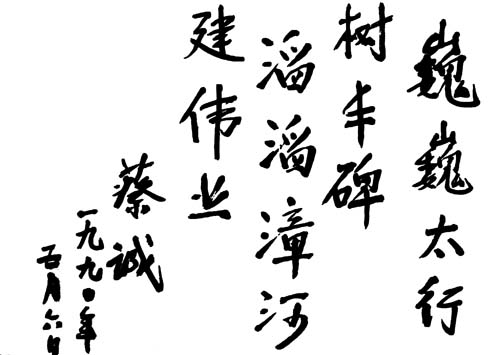 巍巍太行
树丰碑
滔滔漳河
建伟业
蔡诚
一九九〇年
五月六日